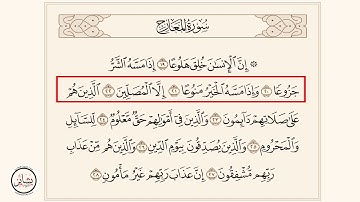 سُورَةُ المَعَارِجِ
۞ إِنَّ ٱلۡإِنسَٰنَ خُلِقَ هَلُوعًا ١٩ إِذَا مَسَّهُ ٱلشَّرُّ
جَزُوعٗا ٢٠ وَإِذَا مَسَّهُ ٱلۡخَيۡرُ مَنُوعًا ٢١ إِلَّا ٱلۡمُصَلِّينَ ٢٢ ٱلَّذِينَ هُمۡ
عَلَىٰ صَلَاتِهِمۡ دَآئِمُونَ ٢٣ وَٱلَّذِينَ فِيٓ أَمۡوَٰلِهِمۡ حَقّٞ مَّعۡلُومٞ ٢٤ لِّلسَّآئِلِ
وَٱلۡمَحۡرُومِ ٢٥ وَٱلَّذِينَ يُصَدِّقُونَ بِيَوۡمِ ٱلدِّينِ ٢٦ وَٱلَّذِينَ هُم مِّنۡ عَذَابِ
رَبِّهِم مُّشۡفِقُونَ ٢٧ إِنَّ عَذَابَ رَبِّهِمۡ غَيۡرُ مَأۡمُونٖ ٢٨